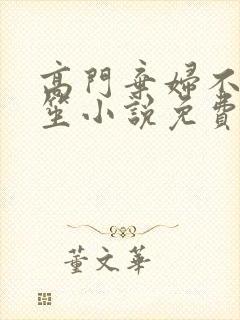 高門棄婦不
笙小說免費
董文華